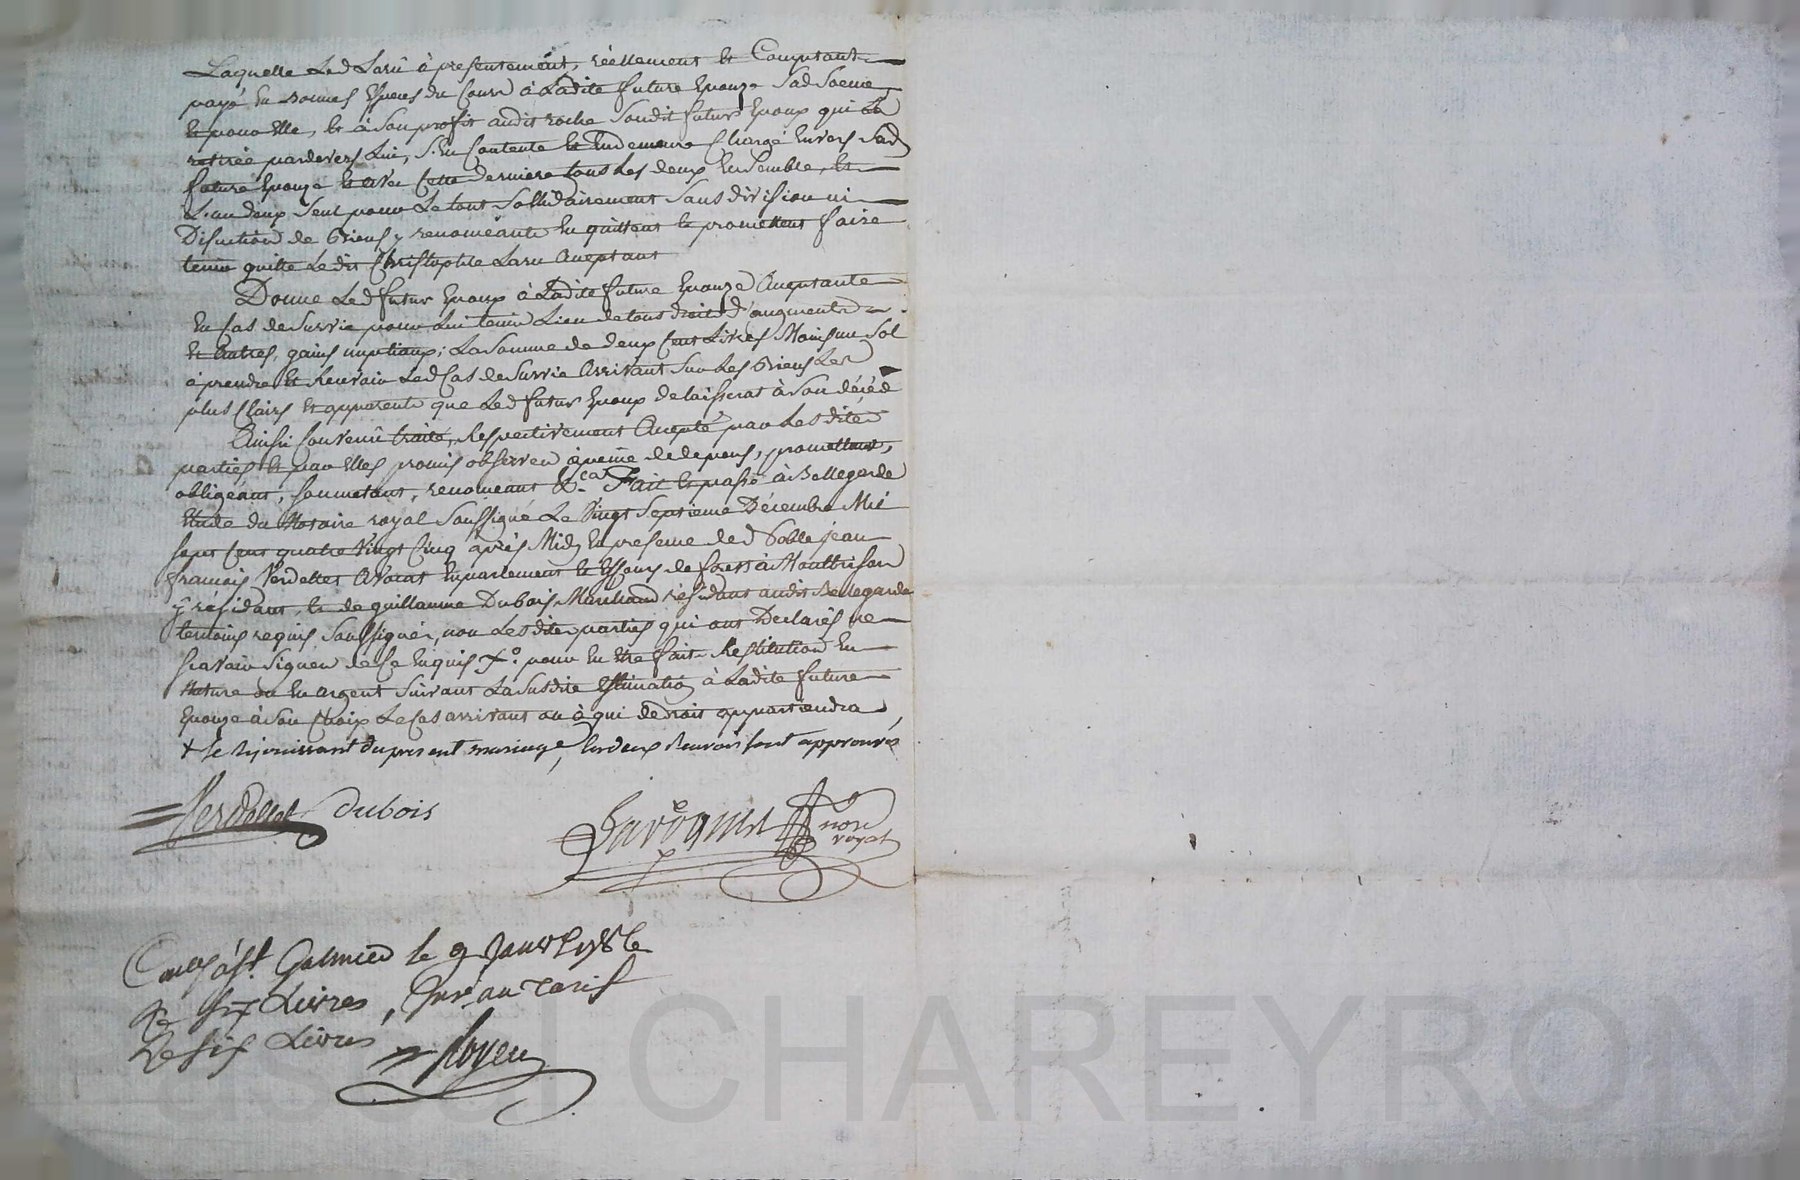 Laquelle Led Larû à presentement, réellement et Comptant
payé en bonnes Especes du Cours à Ladite future Epouze Sad Soeur,
et pour Elle, et à Son profit audit roche Sondit futur Epoux qui La
retirée pardevers Lui, S'en Contente et Endemeure Chargé Envers Sad
future Epouze et avec Cette derniere tous Les deux Ensemble, et
L'un deux Seul pour Le tout Sollidairement Sans division ni
Discution de biens y renonceants En quittent et promettent faire
tenir quitte Ledit Christophle Laru Aceptant
Donne Led futur Epoux à Ladite future Epouze Aceptante
En Cas de Survie pour Lui tenir Lieu de tous droits d'augments
et Autres, gains nuptiaux; La Somme de deux Cent Livres Moins un Sol
à prendre et Recevoir Led Cas de Survie Arrivant Sur Les biens Les
plus Clairs et apparents que Led futur Epoux delaisserat à Son décéd
Ainsi Convenû traité, Respectivement Acepté par Les dites
parties et par Elles promis observer à peine de depens, promettant,
obligeant, Soumetant, renonceant &.ca Fait et passé à Bellegarde
Etude du Notaire royal Soussigné Le Vingt Septieme Décembre Mil
Sept Cent quatre Vingt Cinq après Midy En presence de d Noble jean
francois Verdellet Avocat En parlement et Es Cours de forest à Montbrison
ÿ résidant, et de guillaume Dubois Marchand résidant audit Bellegarde
temoins requis Soussignés, non Les dites parties qui ont Declarés ne
Scavoir Signer de Ce Enquis &.o pour En Etre fait Restitution En
Nature ou En Argent Suivant La Susdite Estimation à Ladite future
Epouze à Son Choix Le Cas arrivant ou à qui de droit appartiendra,
+ Se Rejouissant du present mariage, les deux Renvois sont approuvés
Verdellet Dubois
nore
royal
à St. Galmier le 9 Janv 1786
Six Livres, au Tarif
De Six Livres
CHAREYRON